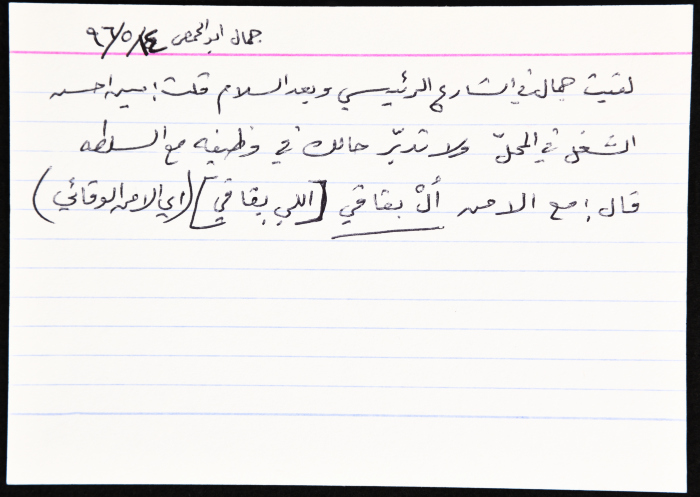 جمال ابو الحمص ٩٦/٥/١٤
لقيت جمال في الشارع الرئيسي وبعد السلام قلت: مين احسن
الشغل في المحلّ ولا تدبّر حالك في وظيفه مع السلطه
قال: مع الامن أُلْ بقاقي [اللي بقاقي] (اي الامن الوقائي)